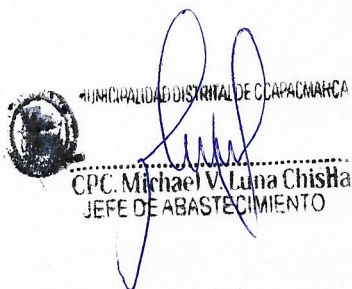 MUNICIPALIDAD DISTRITAL DE CCAPACMARCA
CPC. Michael V. Luna Chislla
JEFE DE ABASTECIMIENTO